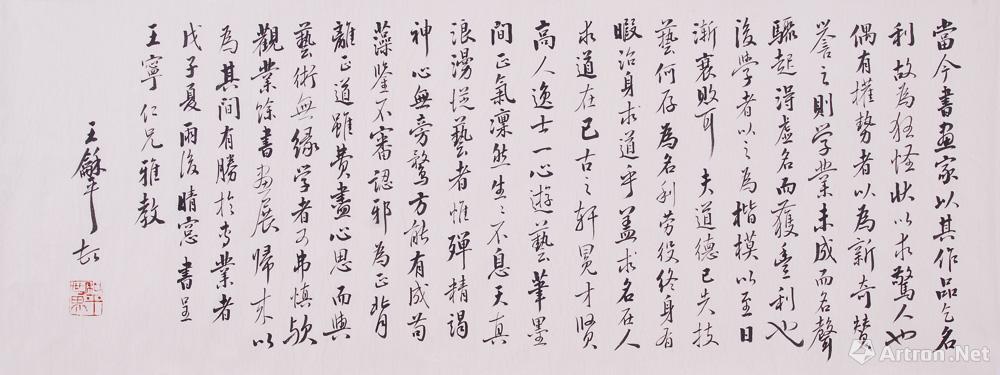 當今書畫家以其作品乞名
利故為狂怪狀以求驚人也
偶有權勢者以為新奇贊
譽之則学業未成而名聲
驟起浔虚名而獲重利也
後學者以之為楷模以至日
漸衰敗耳夫道德已失技
藝何存為名利劳役終身有
暇治身求道乎盖求名在人
求道在己古之轩冕才贤
高人逸士一心遊藝筆墨
間正氣凛然生々不息天真
浪漫従藝者惟殫精竭
神心無旁騖方能有成苟
藻鉴不審認邪為正背
離正道雖费盡心思而與
藝術無緣学者不可不慎欤
觀業馀書畫展歸來以
為其間有勝於专業者
戊子夏雨後晴窓書呈
王寧仁兄雅教
王龢平
Artron.Net